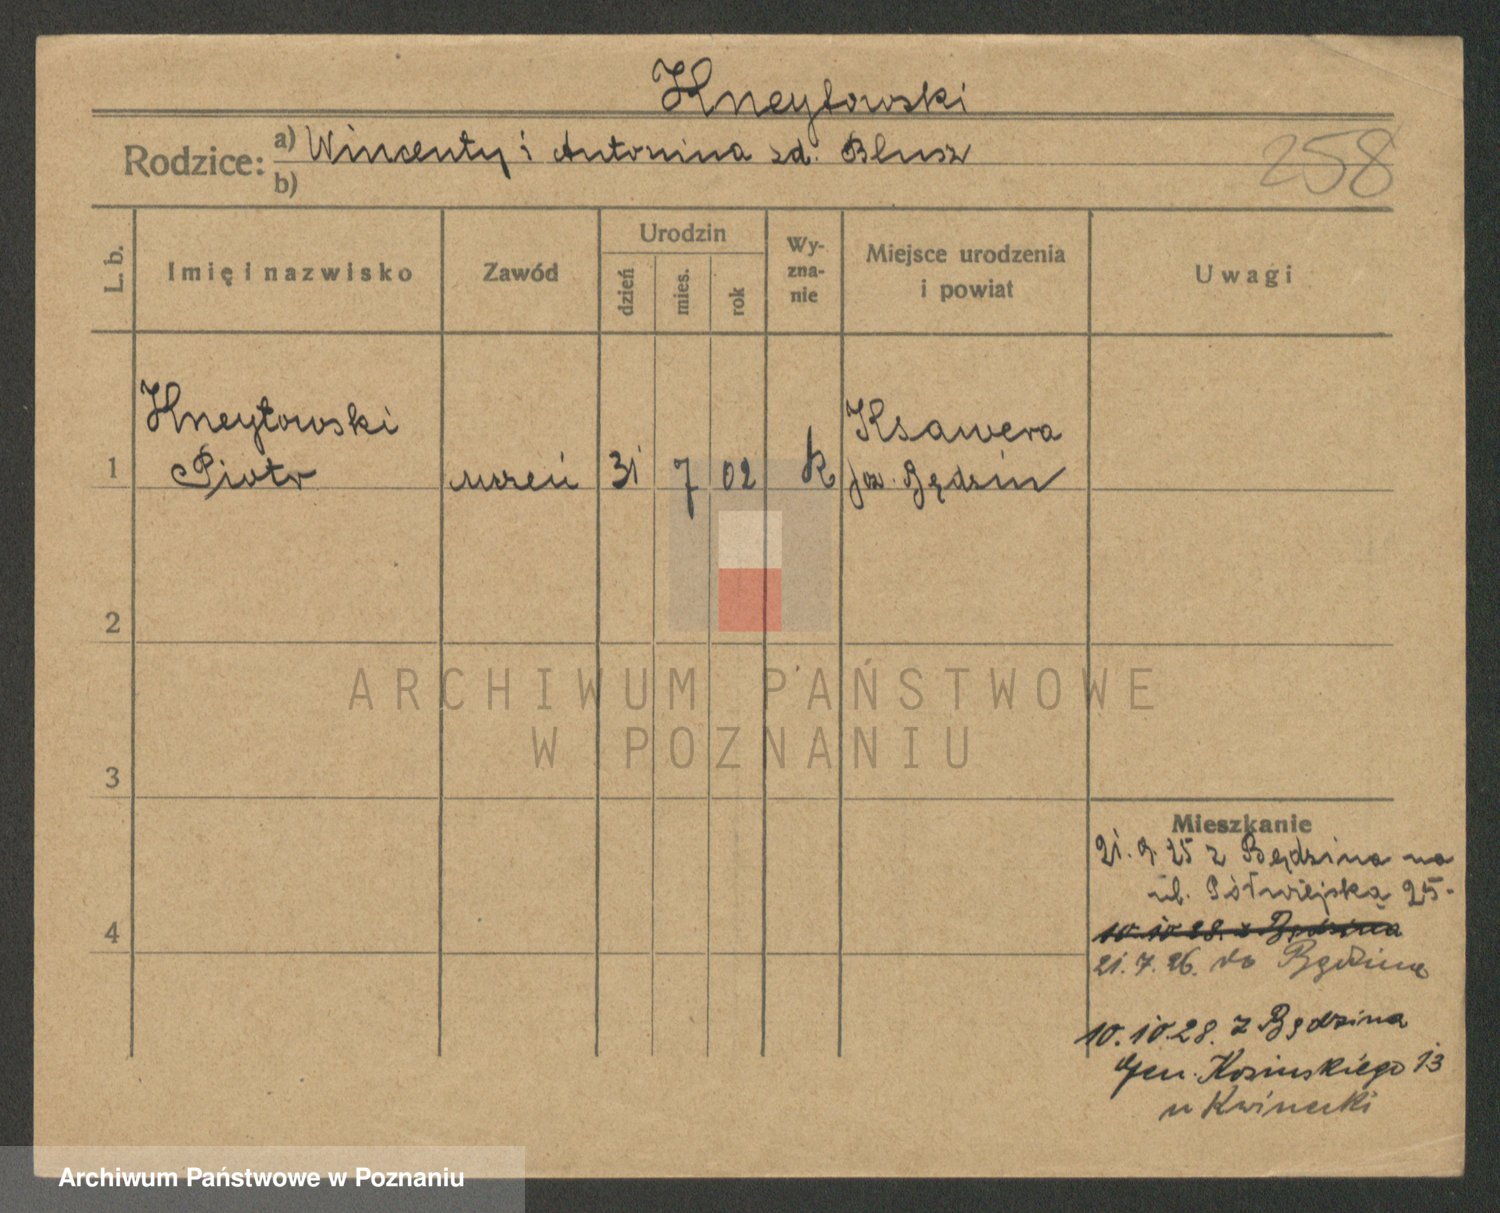 Kneytowski
Rodzice: a) Wincenty i Antonina zd. Blusz
b)
258
L. b.
Imię i nazwisko
Zawód
Urodzin
dzień
mies.
rok
Wy-
zna-
nie
Miejsce urodzenia
i powiat
Uwagi
Kneytowski
Piotr
1
uczeń
31
7
02
k
Ksawera
pow. Będzin
2
3
4
ARCHIWUM PAŃSTWOWE
W POZNANIU
Mieszkanie
21.9.25 z Będzina na
ul. Półwiejską 25.
10.10.28. z Będzina
21.7.26. do Będzina
10.10.28. z Będzina
Gen. Kosińskiego 13
u Kwinecki
Archiwum Państwowe w Poznaniu